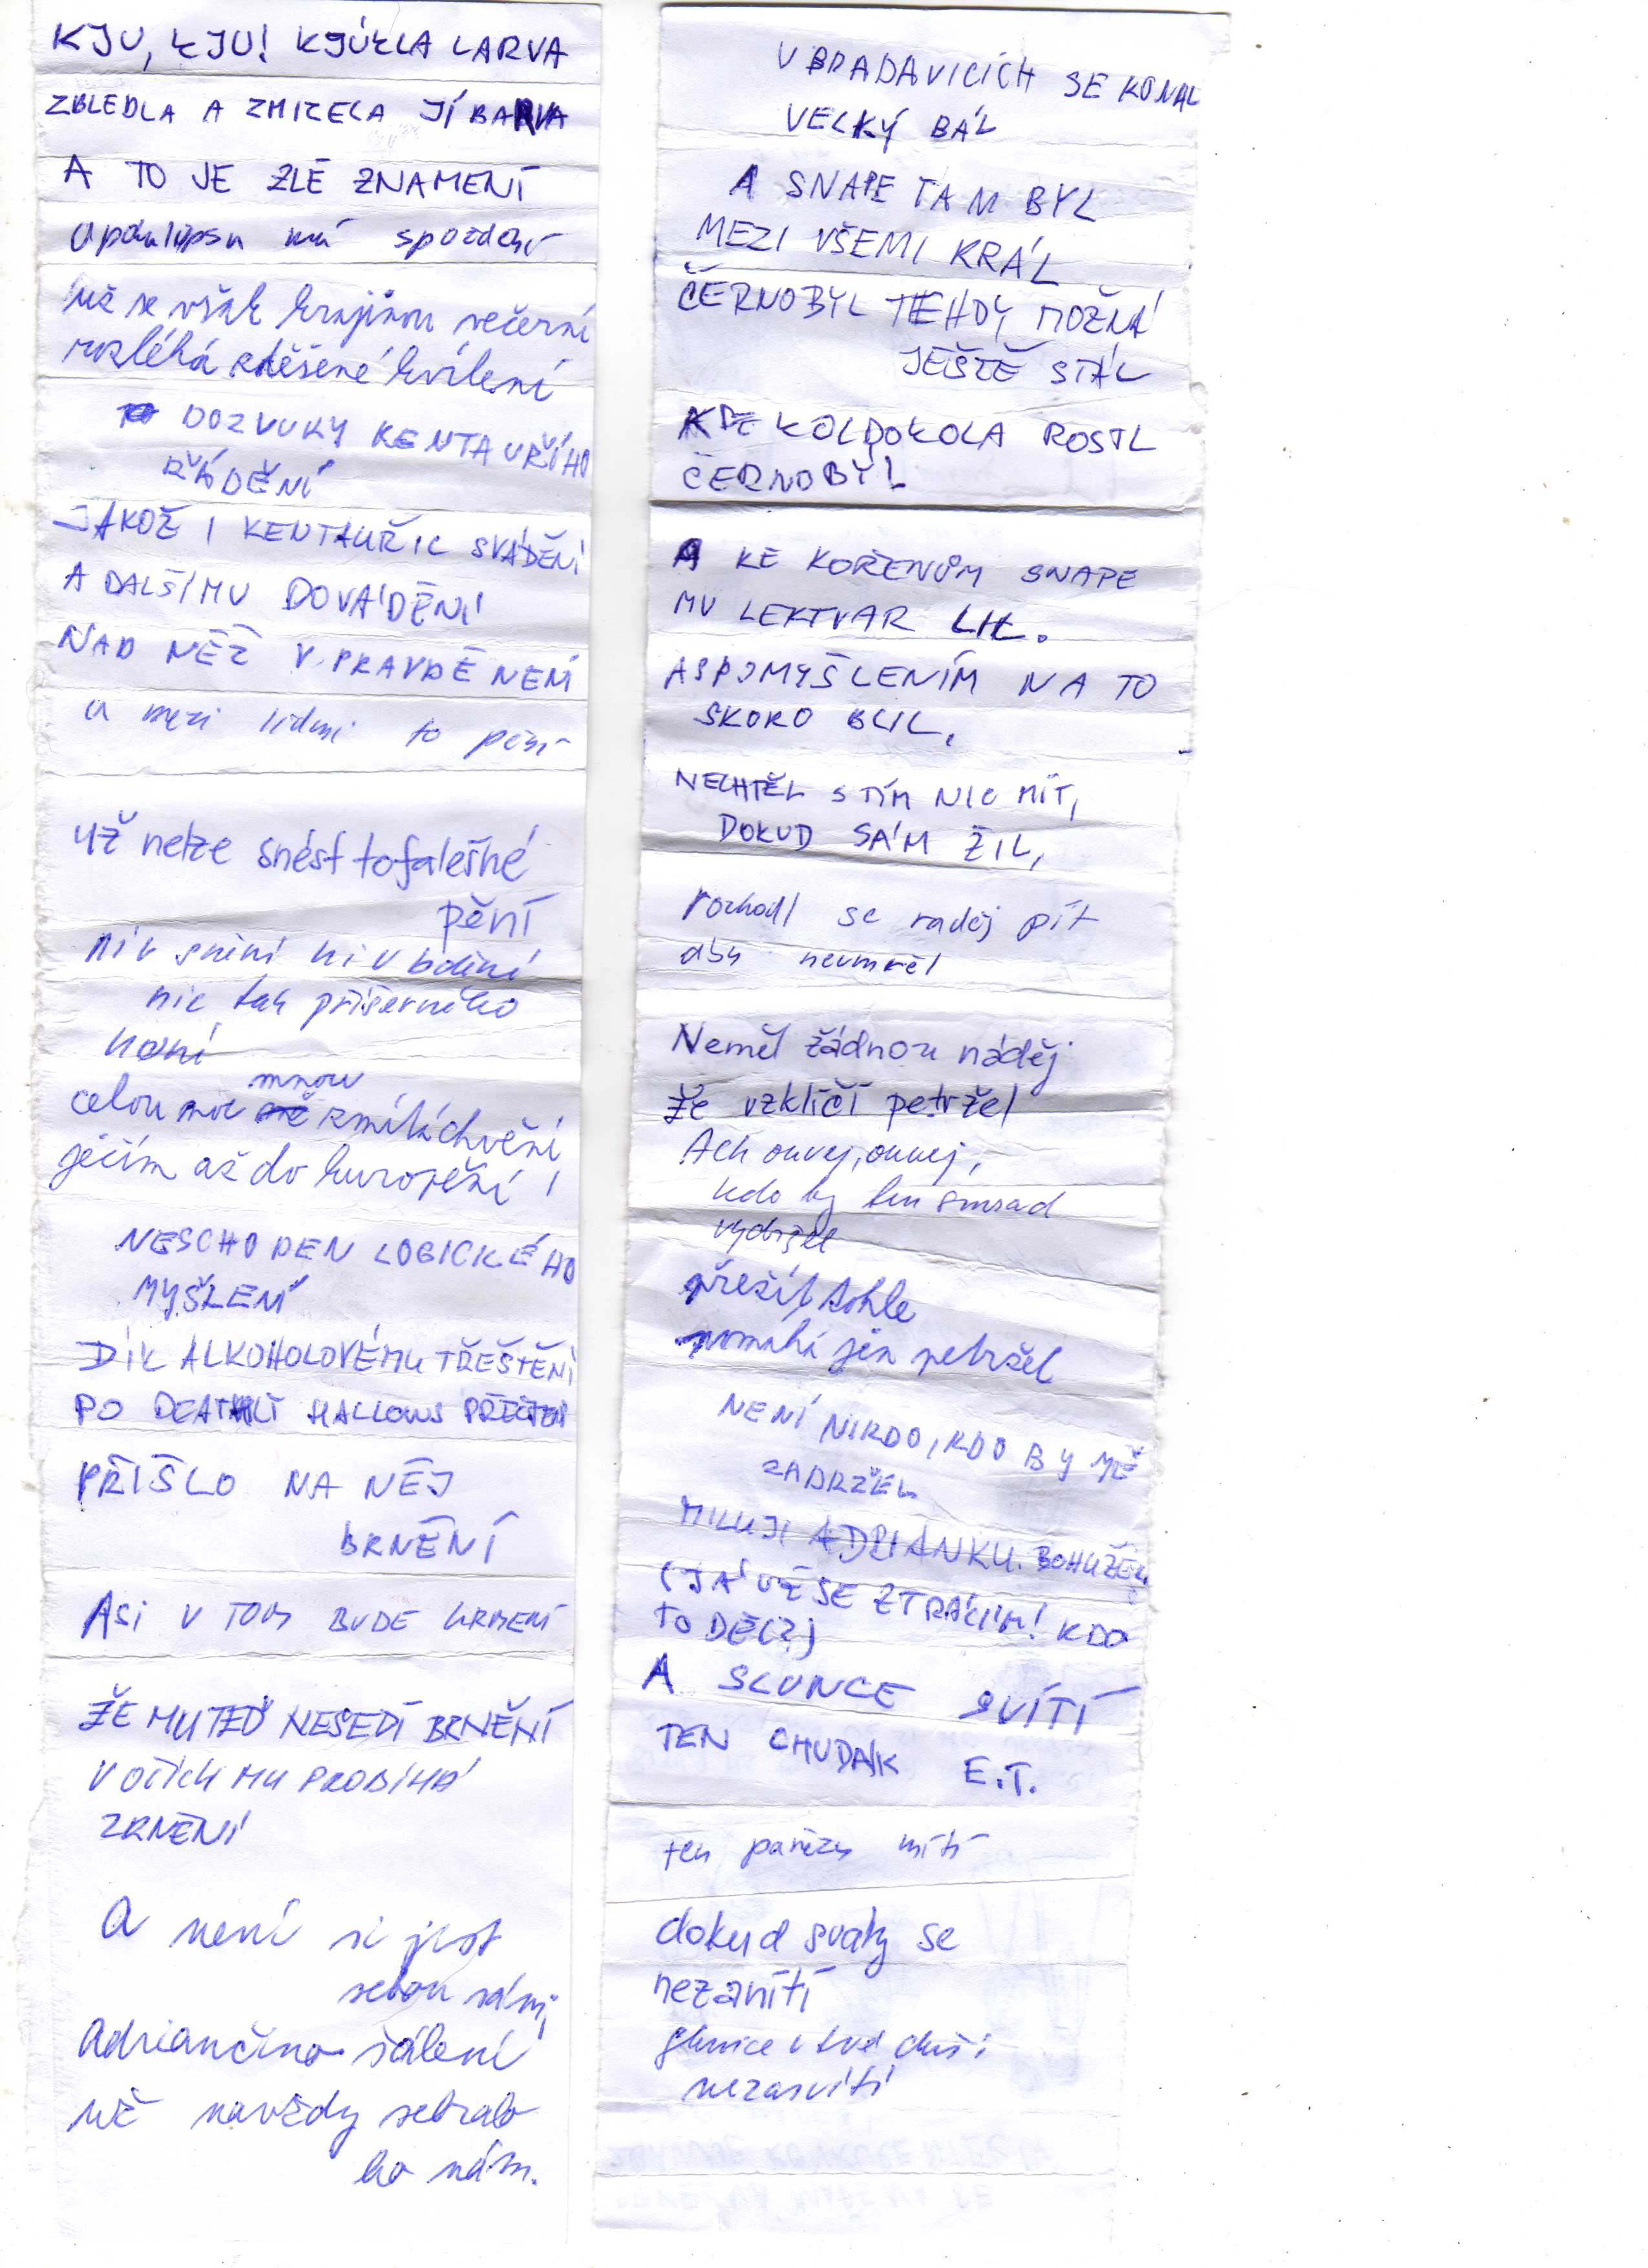 KJU, KJU! KJÚKLA LARVA
ZBLEDLA A ZMIZELA JÍ BARVA
A TO JE ZLÉ ZNAMENÍ
apokalypsa má spoždění
Už se však krajinou večerní
rozléhá zděšené kvílení
DOZVUKY KENTAUŘÍHO
ŘÁDĚNÍ
JAKOŽ I KENTAUŘIC SVÁDĚNÍ
A DALŠÍMU DOVÁDĚNÍ
NAD NĚŽ V PRAVDĚ NENÍ
a mezi lidmi to pění
už nelze snést to falešné
pění
ni v snění ni v bdění
nic tak příšerného
není
mnou
celou noc zmítá chvění
ječím až do kuropění!
NESCHODEN LOGICKÉHO
MYŠLENÍ
DÍK ALKOHOLOVÉMU TŘEŠTĚNÍ
PO DEATHLY HALLOWS PŘEČTENÍ
PŘIŠLO NA NĚJ
BRNĚNÍ
ASI V TOM BUDE KRMENÍ
ŽE MU TEĎ NESEDÍ BRNĚNÍ
V OČÍCH MU PROBÍHÁ
ZRNĚNÍ
A není si jist
sebou sám,
Adriančino šálení
už navždy sebralo
ho nám.
V BRADAVICÍCH SE KONAL
VELKÝ BÁL
A SNAPE TAM BYL
MEZI VŠEMI KRÁL
ČERNOBYL TEHDY MOŽNÁ
JEŠTĚ STÁL
KDE KOLDOKOLA ROSTL
ČERNOBÝL
A KE KOŘENŮM SNAPE
MU LEKTVAR LIL.
A S POMYŠLENÍM NA TO
SKORO BLIL,
NECHTĚL S TÍM NIC MÍT,
DOKUD SÁM ŽIL,
rozhodl se raděj pít
aby neumřel
Neměl žádnou náděj
Že vzklíčí petržel
Ach ouvej, ouvej,
kdo by ten smrad
vydržel
přežít tohle
pomáhá jen petržel
NENÍ NIKDO, KDO BY MĚ
ZADRŽEL
MILUJI ADRIANKU. BOHUŽEL.
(JÁ UŽ SE ZTRÁCÍM! KDO
TO DĚL?)
A SLUNCE SVÍTÍ
TEN CHUDÁK E.T.
ten pařezy nítí
dokud svaly se
nezanítí
slunce v tvé duši
nezasvítí